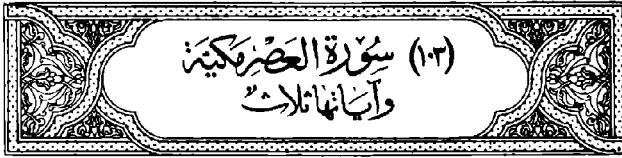 (١٠٣) سُورَة العَصْرِ مَكيّة
وَآيَاتهَا ثلاث